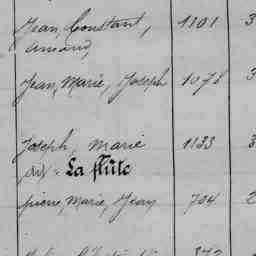 Jean, Constant, 1101 3
Armand,
Jean, Marie, Joseph 1078 3
Joseph, Marie 1133 3
dit - La flûte
pierre, Marie, Jean 704 2